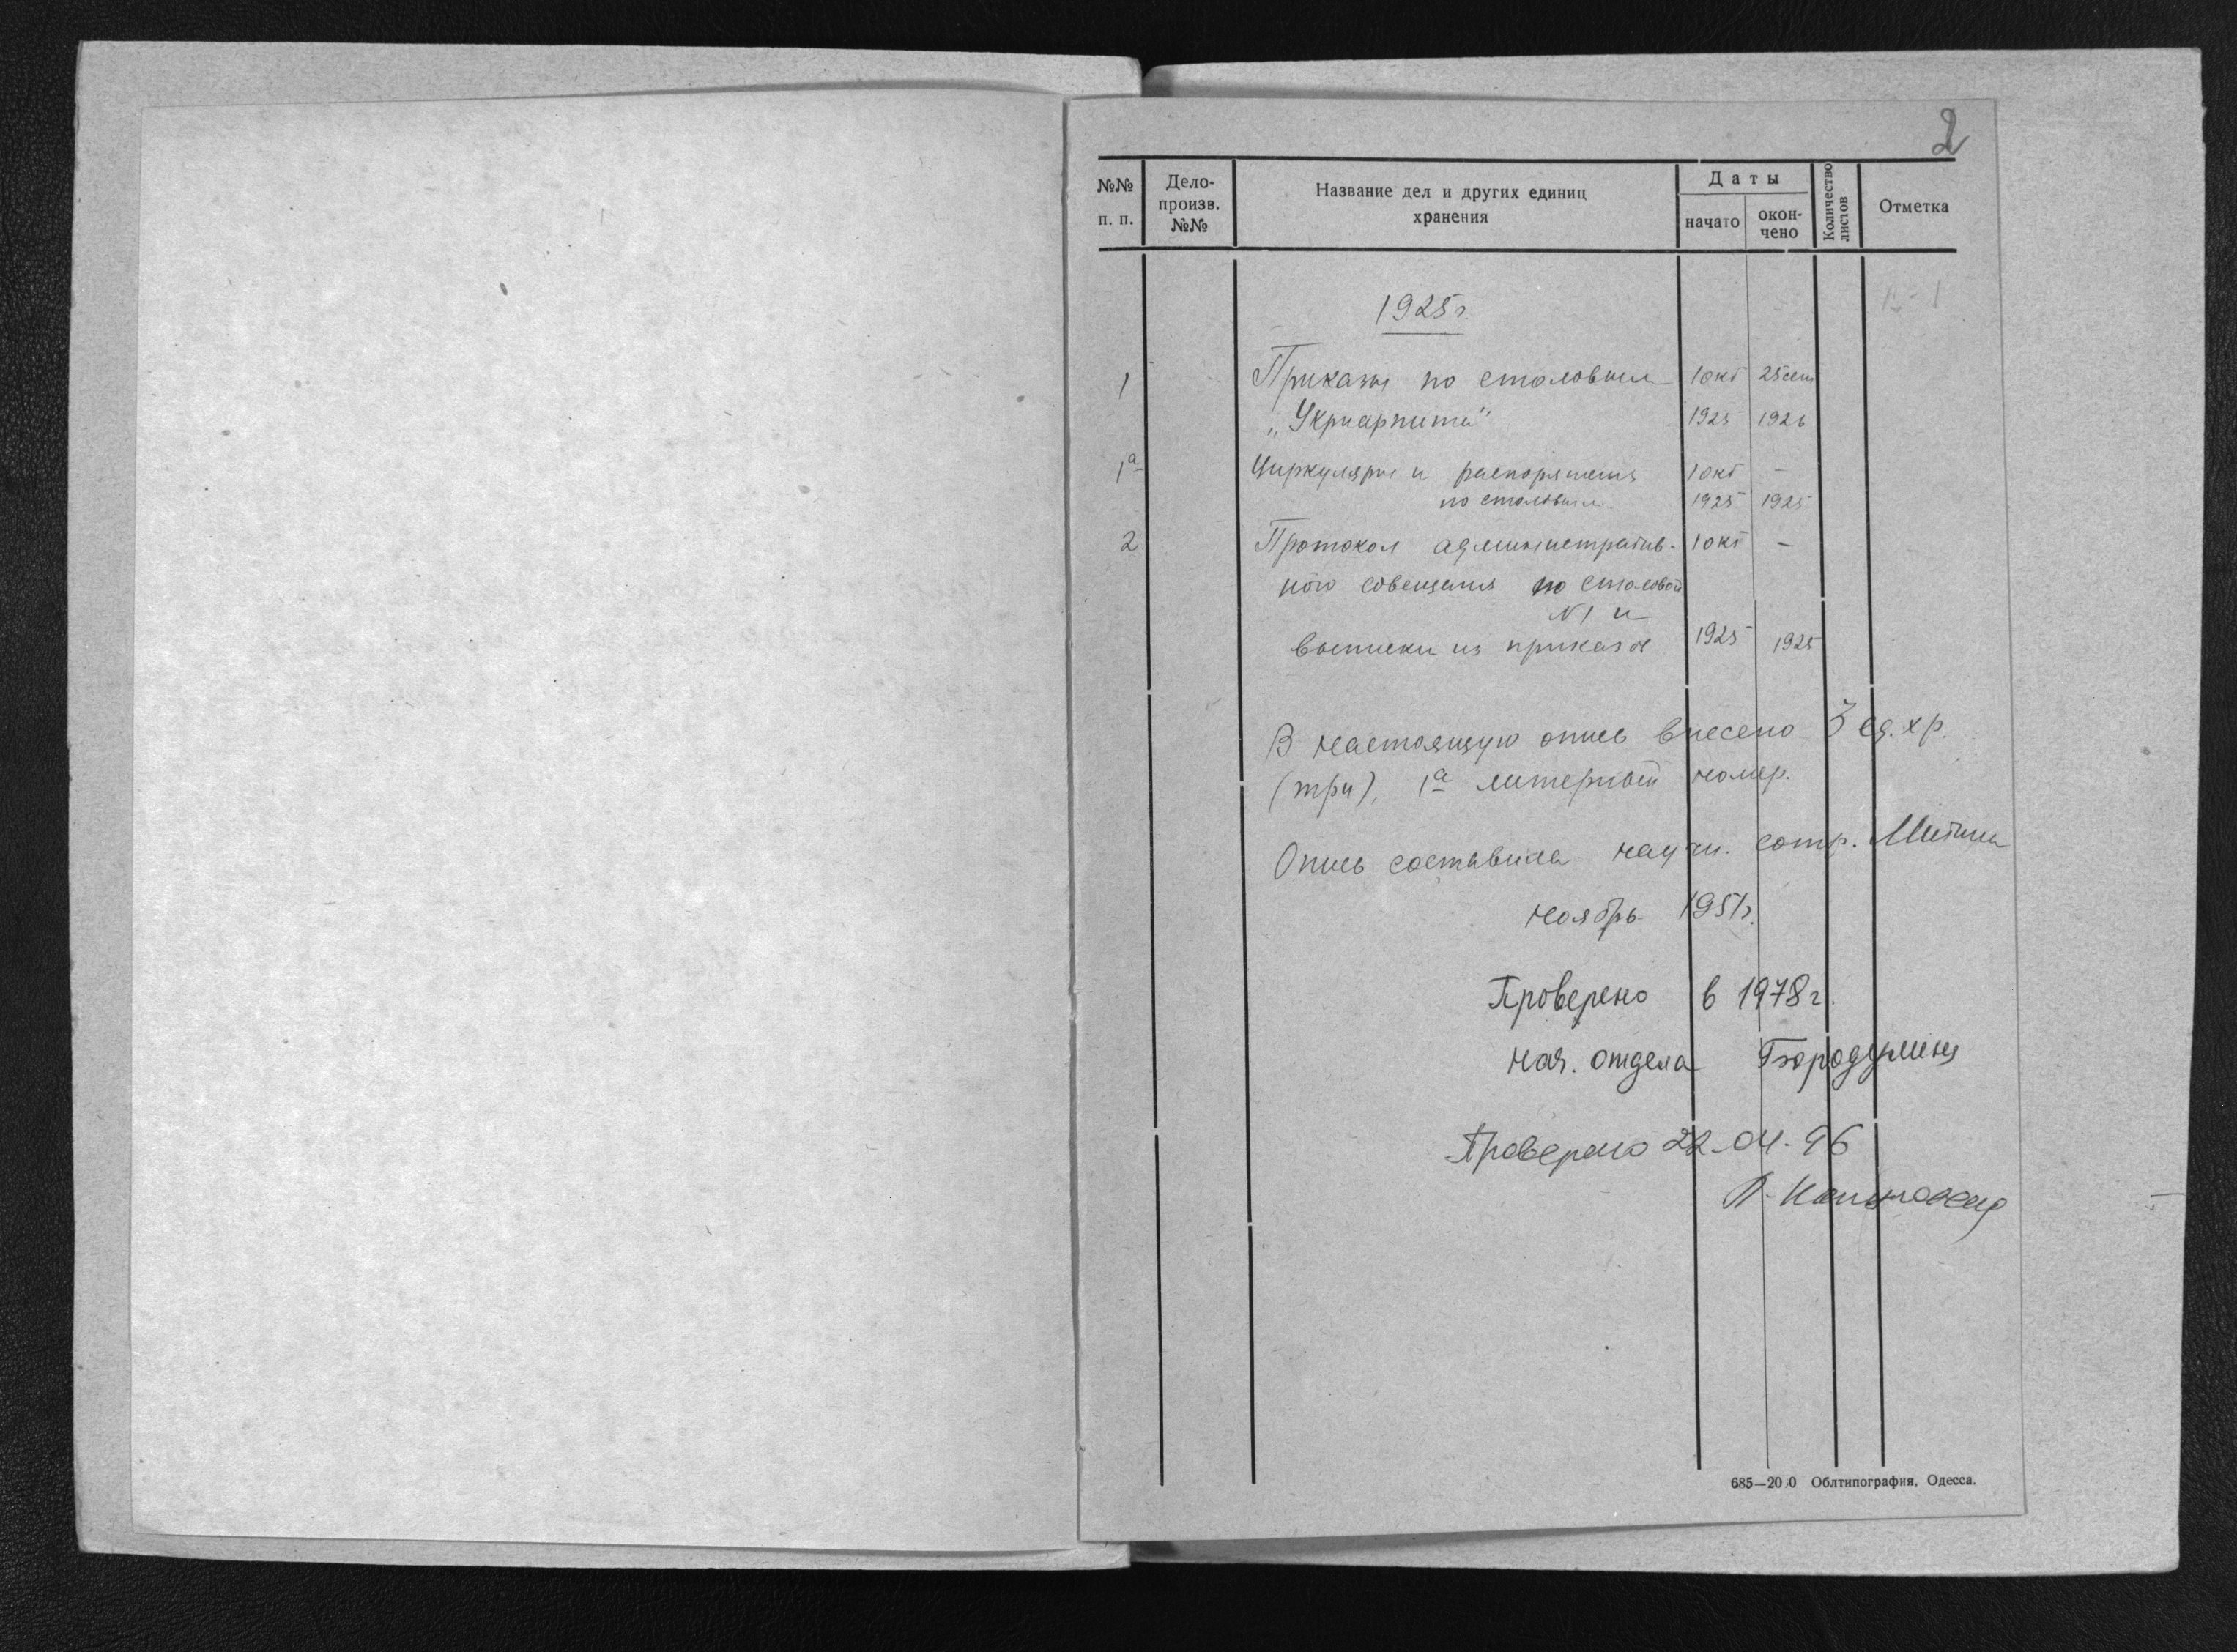 2
№№ п. п.
Дело-произв. №№
Название дел и других единиц хранения
Даты
начато
окон-чено
Количество листов
Отметка
1925 г.
1 Приказы по столовым 1 окт 25 сент
„Укрнарпита" 1925 1926
1а Циркуляры и распоряжения 1 окт -
по столовым 1925 1925
2 Протокол административ- 1 окт -
ного совещания по столовой
N 1 и
выписки из приказов 1925 1925
В настоящую опись внесено 3 ед. хр.
(три), 1а литерный номер.
Опись составила научн. сотр.
ноябрь 1951 г.
Проверено в 1978 г.
нач. отдела
Проверено 22.04.96
685—20 0 Облтипография, Одесса.